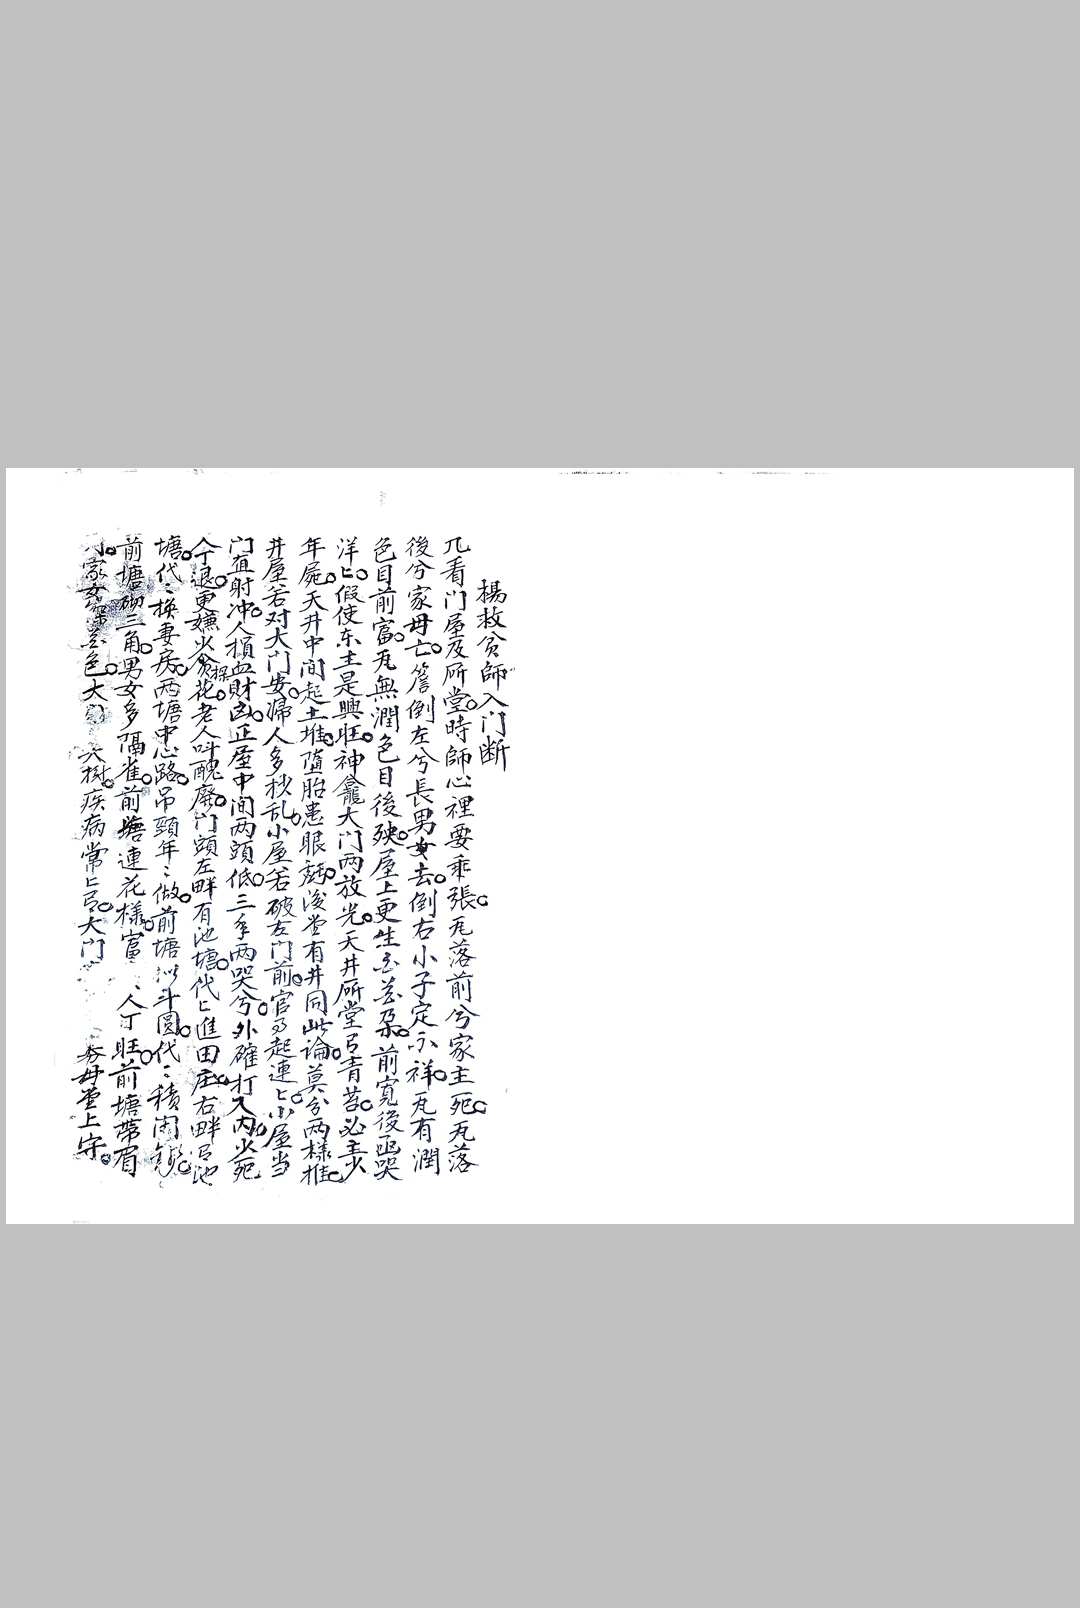 楊救贫師入门断
凢看门屋及所堂。時師心裡要乖張。瓦落前兮家主死。瓦落
後兮家母亡。簷倒左兮長男女去。倒右小子定不祥。瓦有潤
色目前富。瓦無潤色目後殃。屋上更生。前寬後逼哭
洋ヒ。假使东主是興旺。神龕大门两放光。天井所堂青苔。必主少
年屍。天井中间起土堆。随胎患眼。後堂有井同此論。莫分两樣推。
井屋若对大门安。婦人多杪乱。小屋若破左门前。官起連ヒ。小屋当
门直射冲。人損血財凶。正屋中间两頭低。三年两哭兮。外確打入内。火死
人丁退。更嫌火探花。老人叫醜廢。门頭左畔有池塘。代ヒ進田庄。右畔池
塘。代〻換妻房。两塘中心路。吊頸年〻做。前塘似斗圓。代〻積閑錢。
前塘砌三角。男女多隔雀。前塘連花樣。富人丁旺。前塘帶眉
家女色。大樹。疾病常ヒ。大门母堂上守。